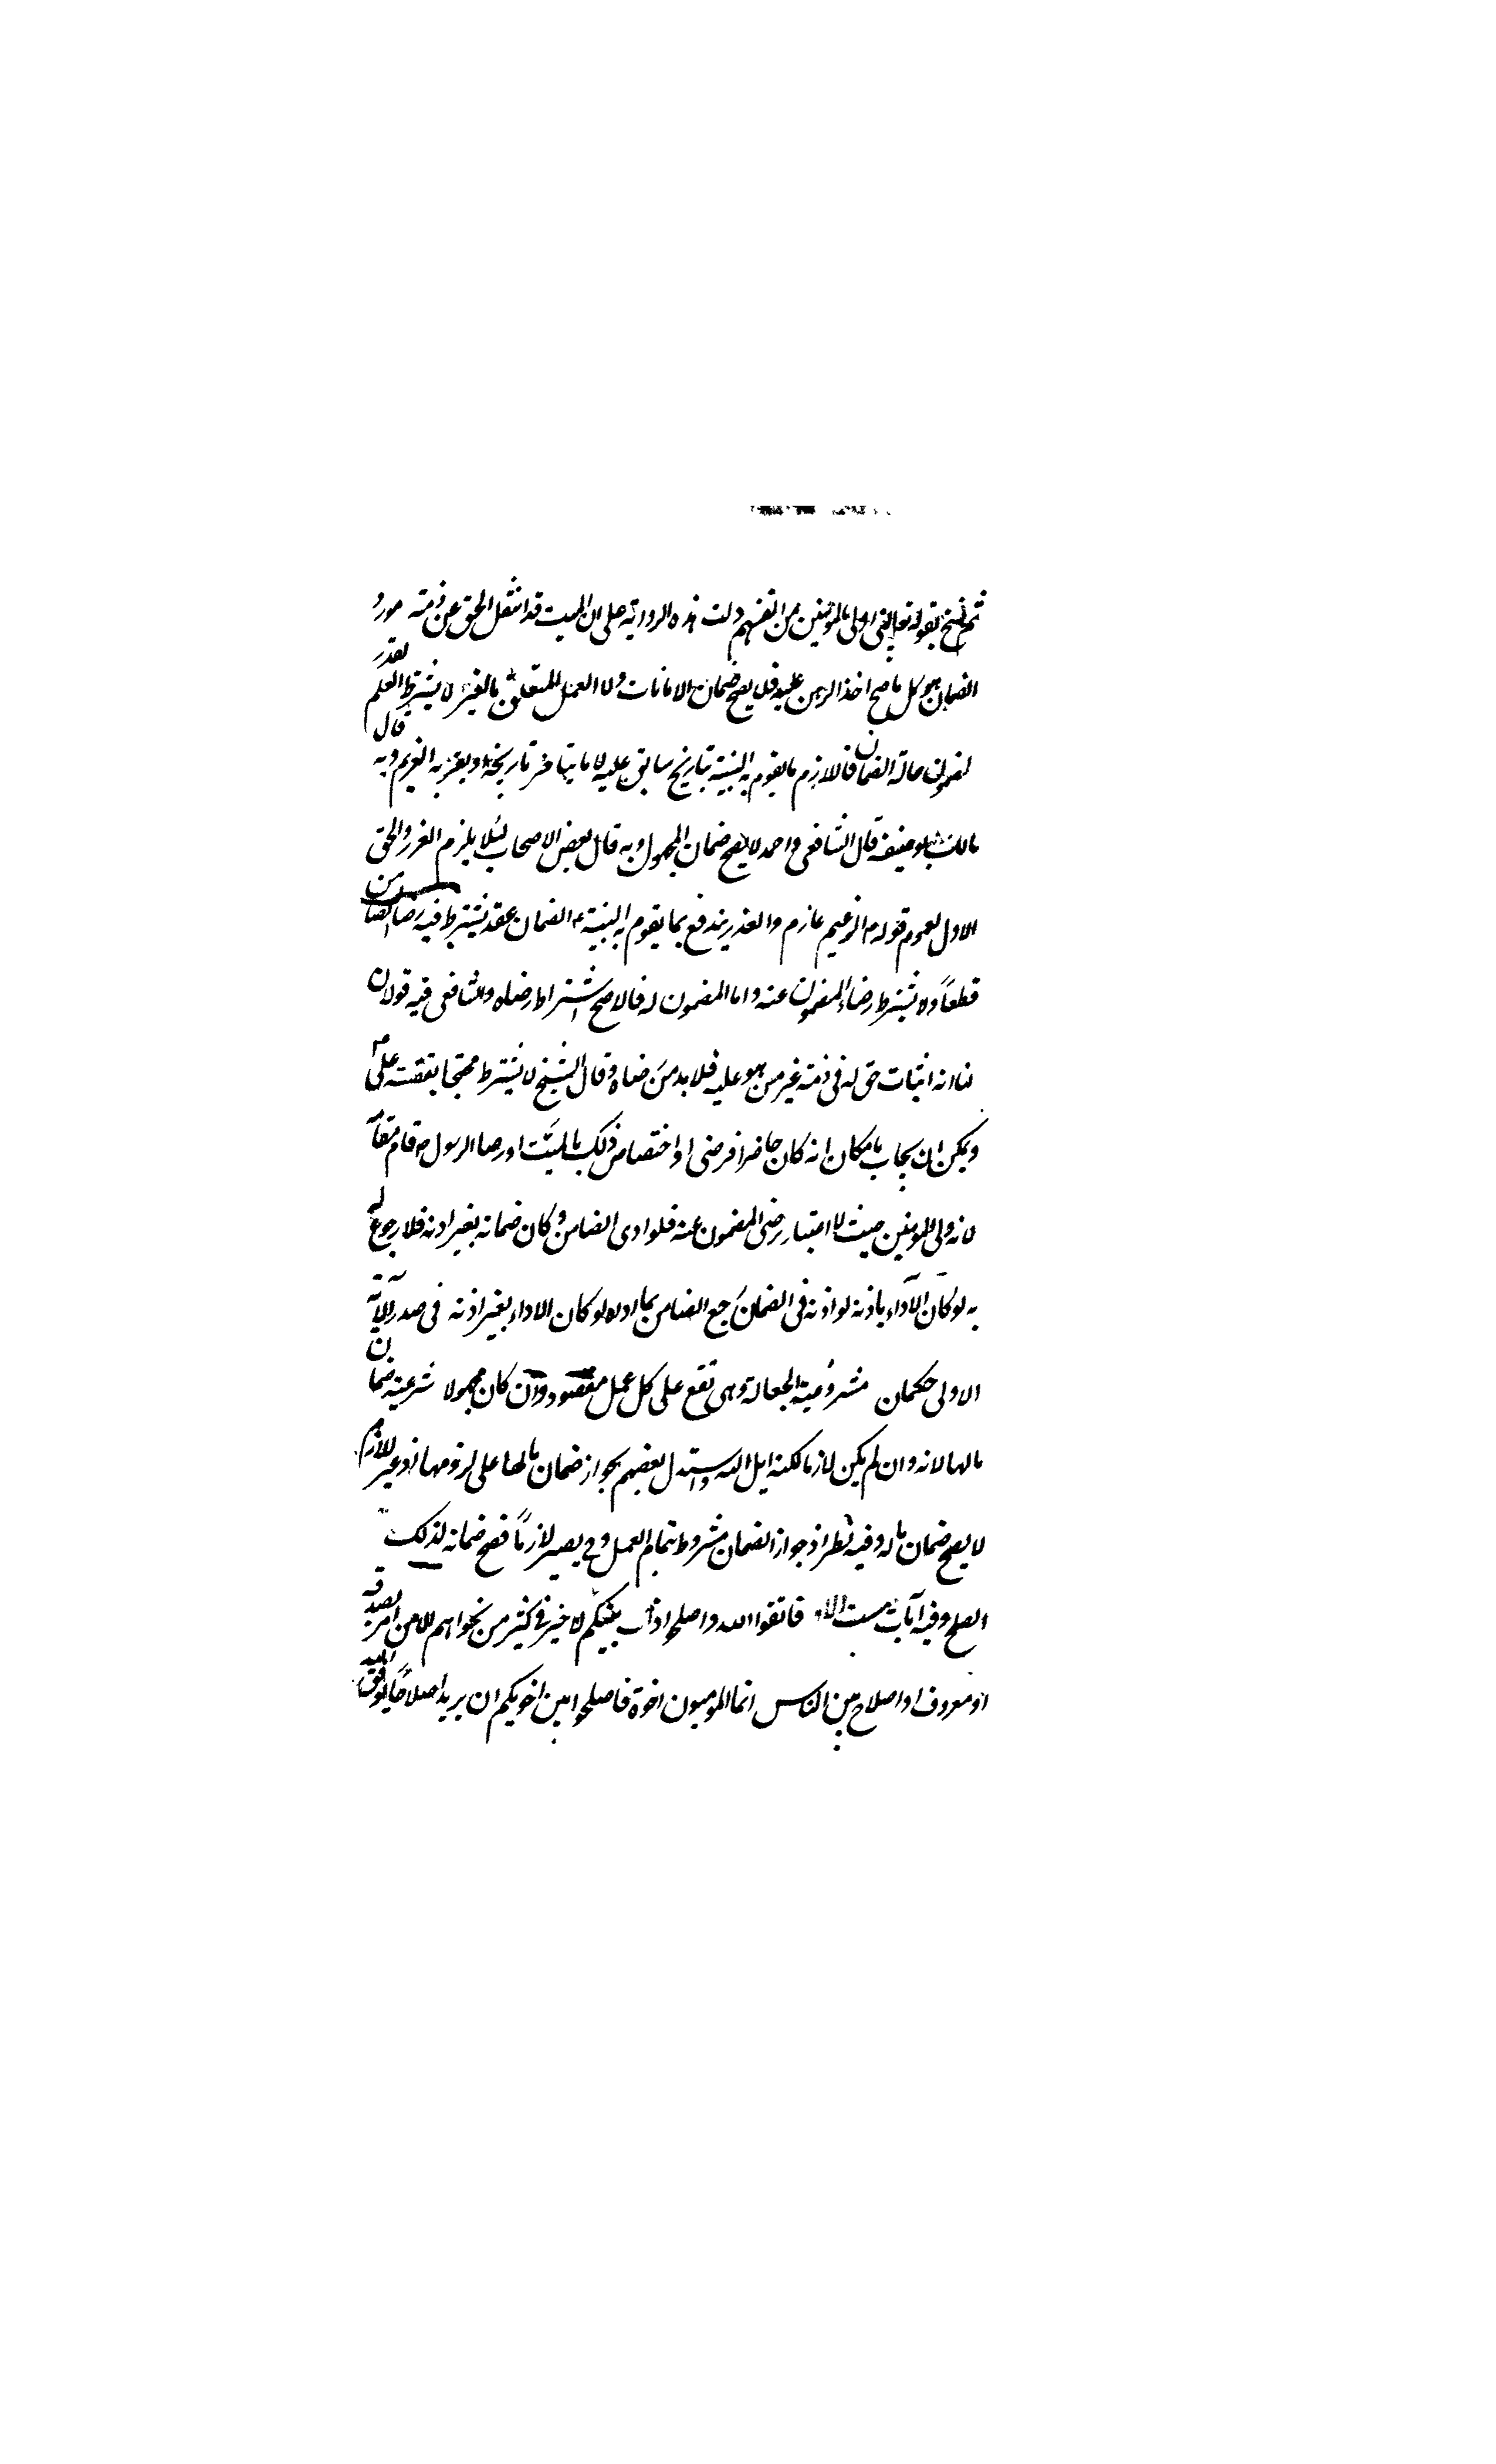 ثم نسخ بقوله تعالى النبي اولى بالمؤمنين من انفسهم دلت هذه الرواية على ان الميت قد انتقل الحق عن ذمته مورد
الضمان هو كل ما صح اخذ الرهن عليه فلا يصح ضمان الامانات ولا العمل المتعلق بالغير لا يشترط العلم بقدر
المضمون حالة الضمان فاللازم ما يقوم به البينة بتاريخ سابق عليه لا ما يتاخر تاريخه او يقر به الغريم وبه قال
مالك وابو حنيفة قال الشافعي واحمد لا يصح ضمان المجهول وبه قال بعض الاصحاب لئلا يلزم الغرر والحق
الاول لعموم قوله م الزعيم غارم والغرر يندفع بما يقوم به البينة الضمان عقد يشترط فيه رضا الضامن
قطعاً ولا يشترط رضاء المضمون عنه واما المضمون له فالاصح اشتراط رضاه وللشافعي فيه قولان
لنا انه اثبات حق له في ذمة غير من هو عليه فلا بد من رضاه وقال الشيخ لا يشترط محتجا بقضية علي
ويمكن ان يجاب بامكان انه كان حاضرا فرضى او اختصاص ذلك بالميت او رضا الرسول ص قام مقامه
لانه ولي المؤمنين حيث لا اعتبار رضى المضمون عنه فلو ادى الضامن وكان ضمانه بغير اذنه فلا رجوع له
به لو كان الاداء باذنه لو اذنه في الضمان رجع الضامن بما اداه لو كان الاداء بغير اذنه في صدر الآية
الاولى حكمان مشروعية الجعالة وهي تقع على كل عمل مقصود وان كان مجهولا شرعية ضمان
مالها لانه وان لم يكن لازما لكنه ايل اليه واستدل بعضهم بجواز ضمان مالها على لزومها اذ غير اللازم
لا يصح ضمان ماله وفيه نظر اذ جواز الضمان مشروط بتمام العمل وح يصير لازماً فصح ضمانه لذلك
الصلح وفيه آيات ست فاتقوا الله واصلحوا ذات بينكم لا خير في كثير من نجواهم الا من امر بصدقة
او معروف او اصلاح بين الناس انما المؤمنون اخوة فاصلحوا بين اخويكم ان يريدا اصلاحاً يوفق الله